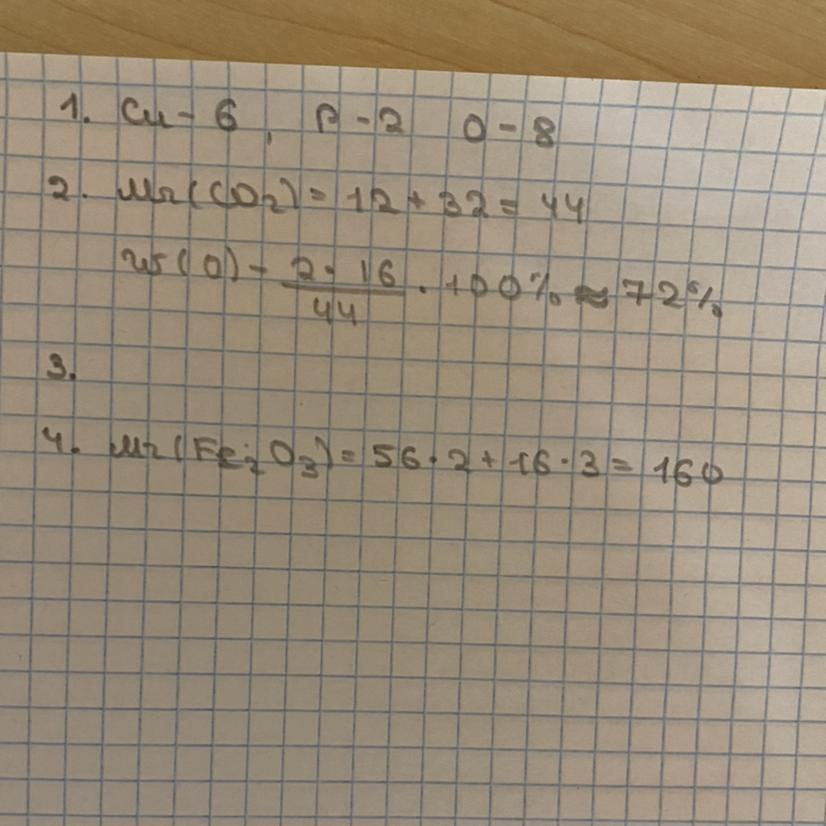 1. Cu - 6, P - 2 O - 8
2. Mr(CO₂) = 12 + 32 = 44
w(O) - 2 · 16 / 44 · 100% ≈ 72%
3.
4. Mr(Fe₂O₃) = 56 · 2 + 16 · 3 = 160